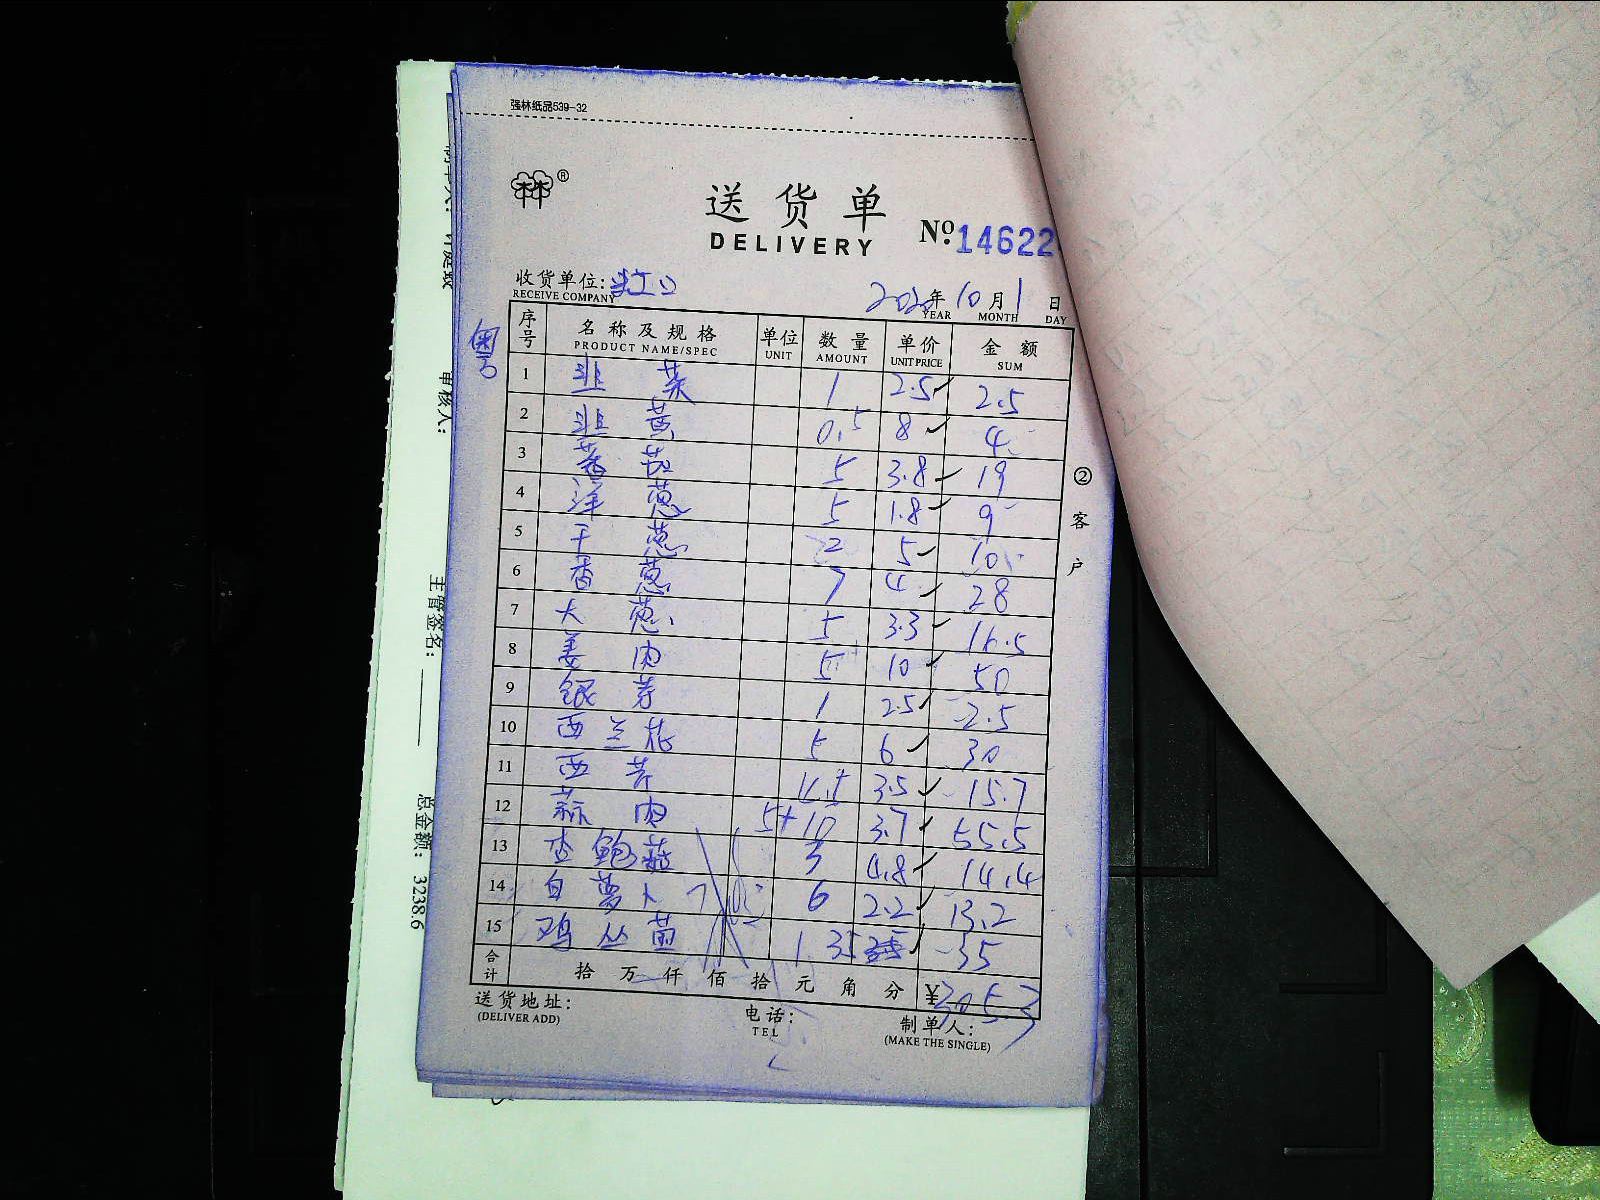 强林纸品539-32
林®
送货单
DELIVERY
№ 14622
收货单位:
RECEIVE COMPANY
2020年10月1日
YEAR MONTH DAY
粤
序号 名称及规格 单位 数量 单价 金额
PRODUCT NAME/SPEC UNIT AMOUNT UNIT PRICE SUM
1 韭菜 1 2.5 2.5
2 韭黄 0.5 8 4
3 蕃茄 5 3.8 19
4 洋葱 5 1.8 9
5 干葱 2 5 10
6 香葱 7 4 28
7 大葱 5 3.3 16.5
8 姜肉 5 10 50
9 银芽 1 2.5 2.5
10 西兰花 5 6 30
11 西芹 3.5 15.7
12 蒜肉 5+10 3.7 55.5
13 杏鲍菇 3 4.8 14.4
14 白萝卜 6 2.2 13.2
15 鸡丛菌 1 35 35
合计 拾万仟佰拾元角分 ¥305.3
送货地址:
(DELIVER ADD)
电话:
TEL
制单人:
(MAKE THE SINGLE)
②客户
审核人:
主管签名:
总金额: 3238.6